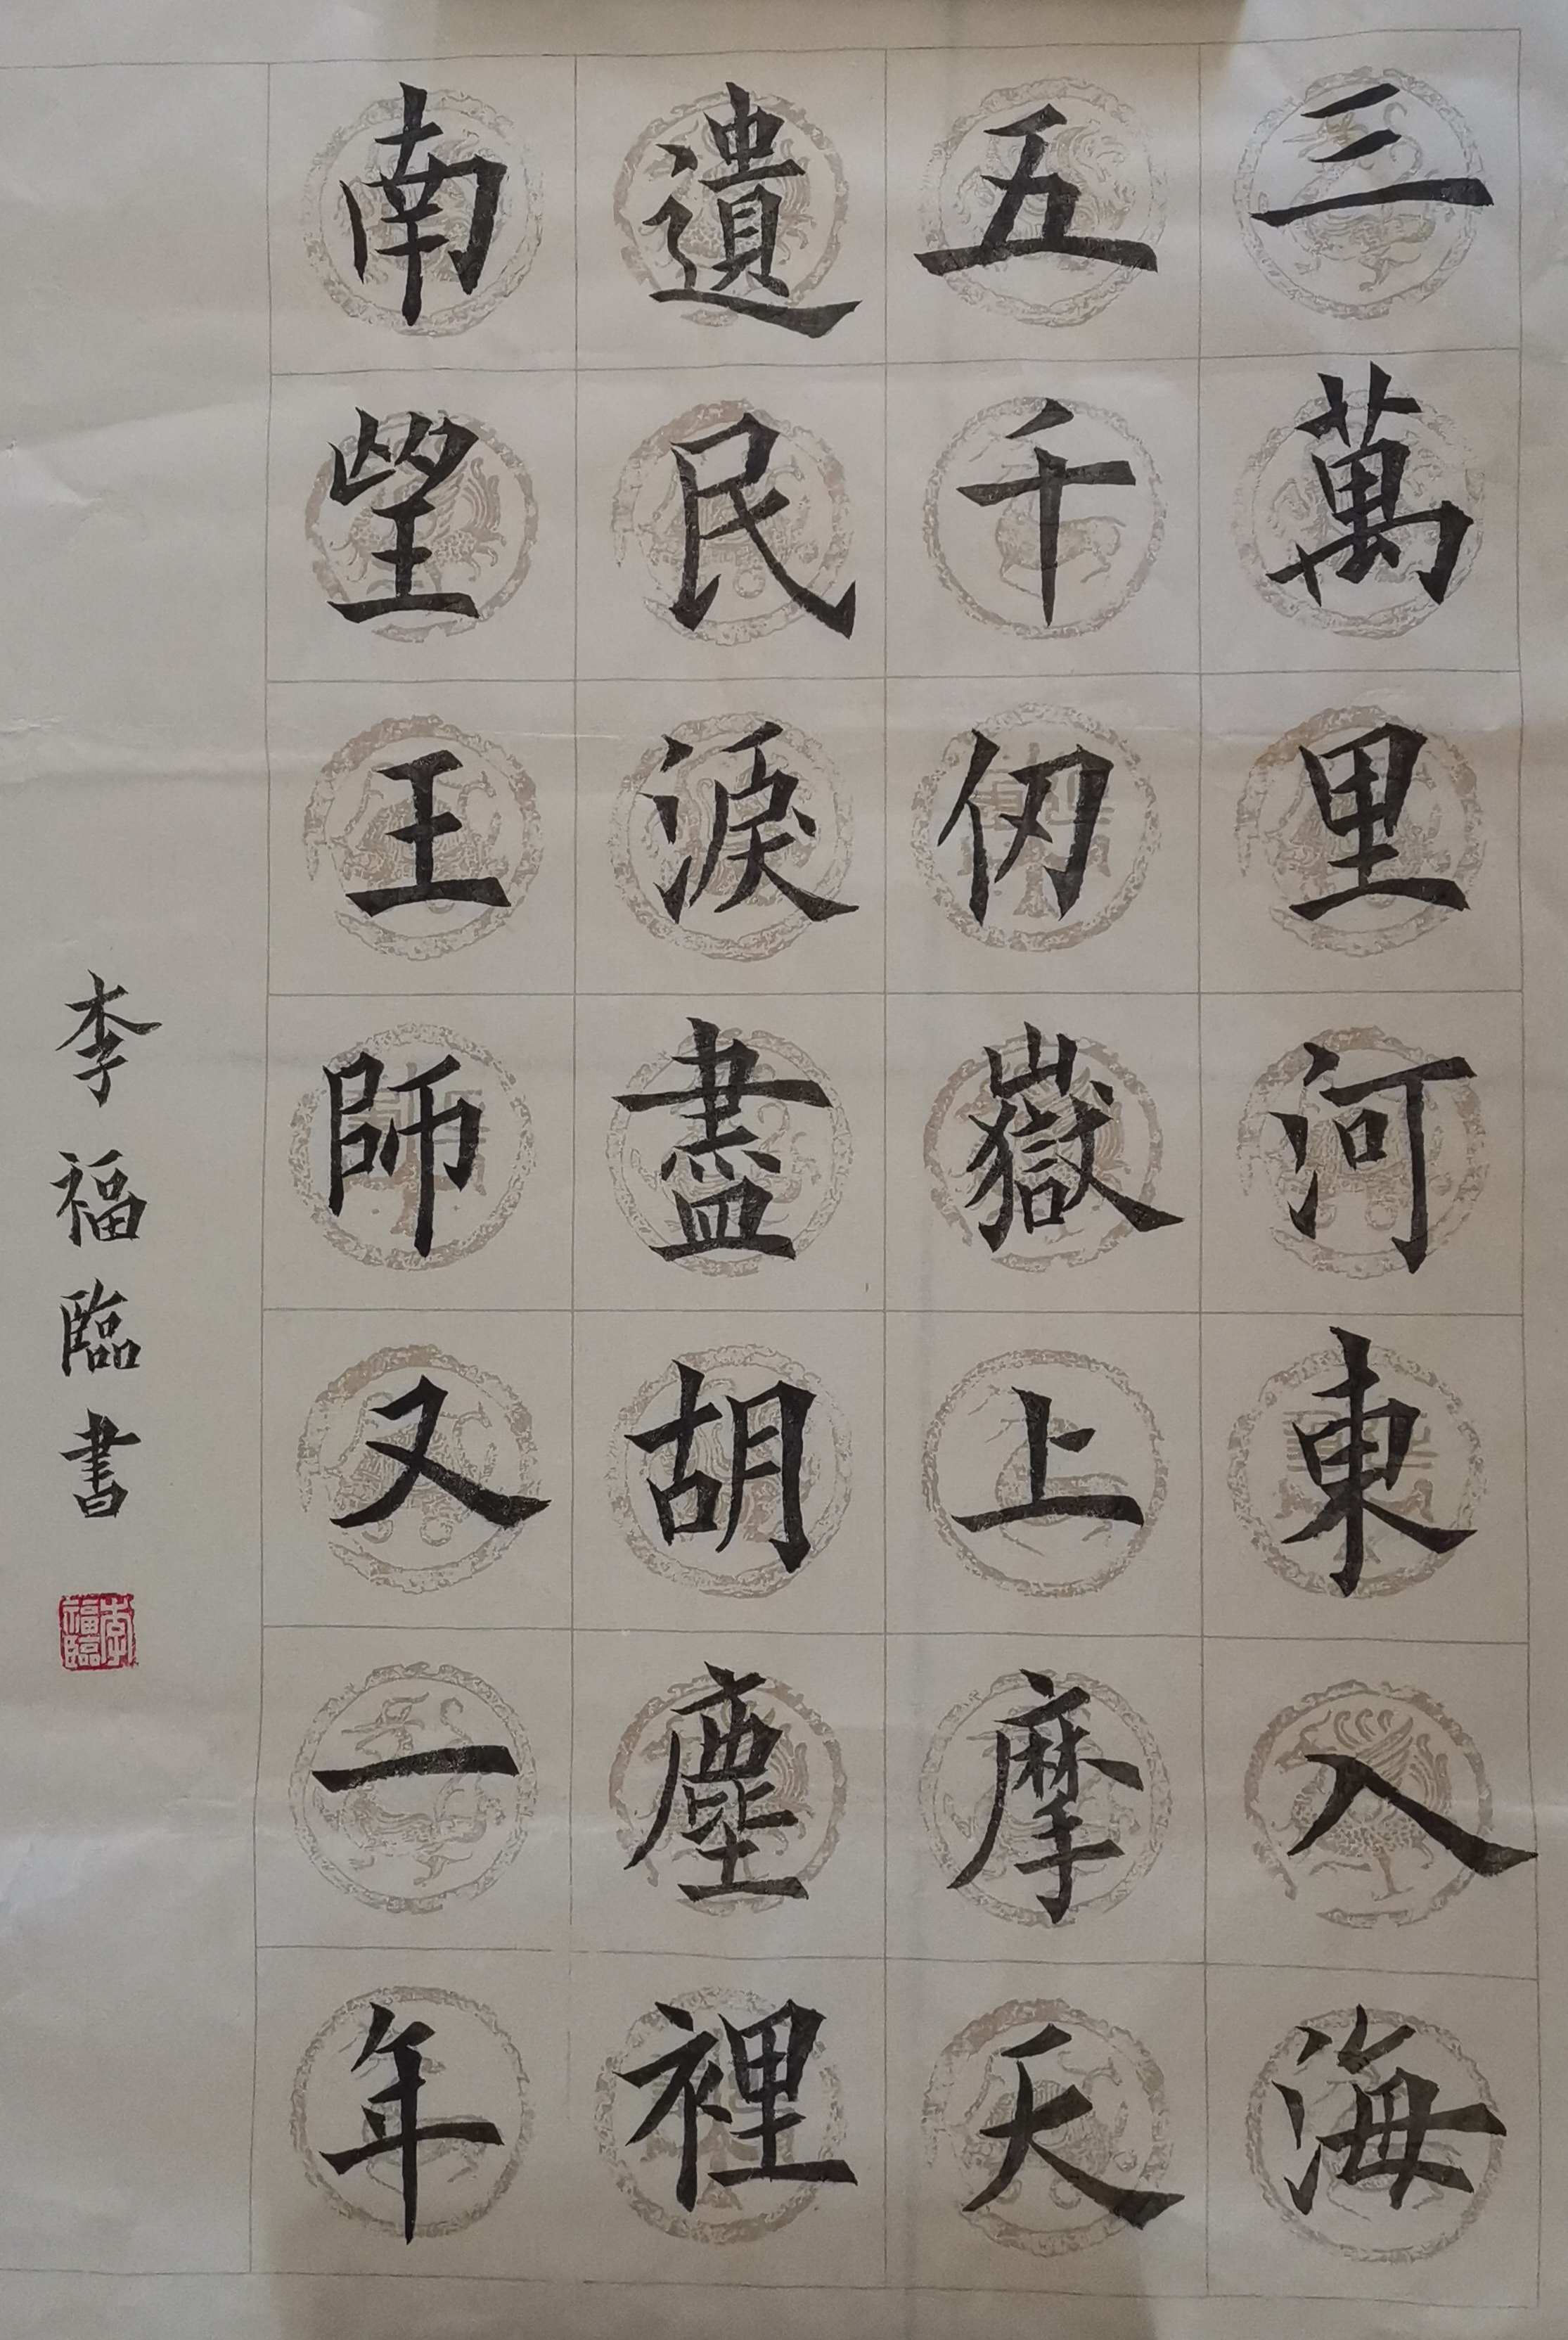 三萬里河東入海
五千仞嶽上摩天
遺民淚盡胡塵裡
南望王師又一年
李福臨書
李福臨